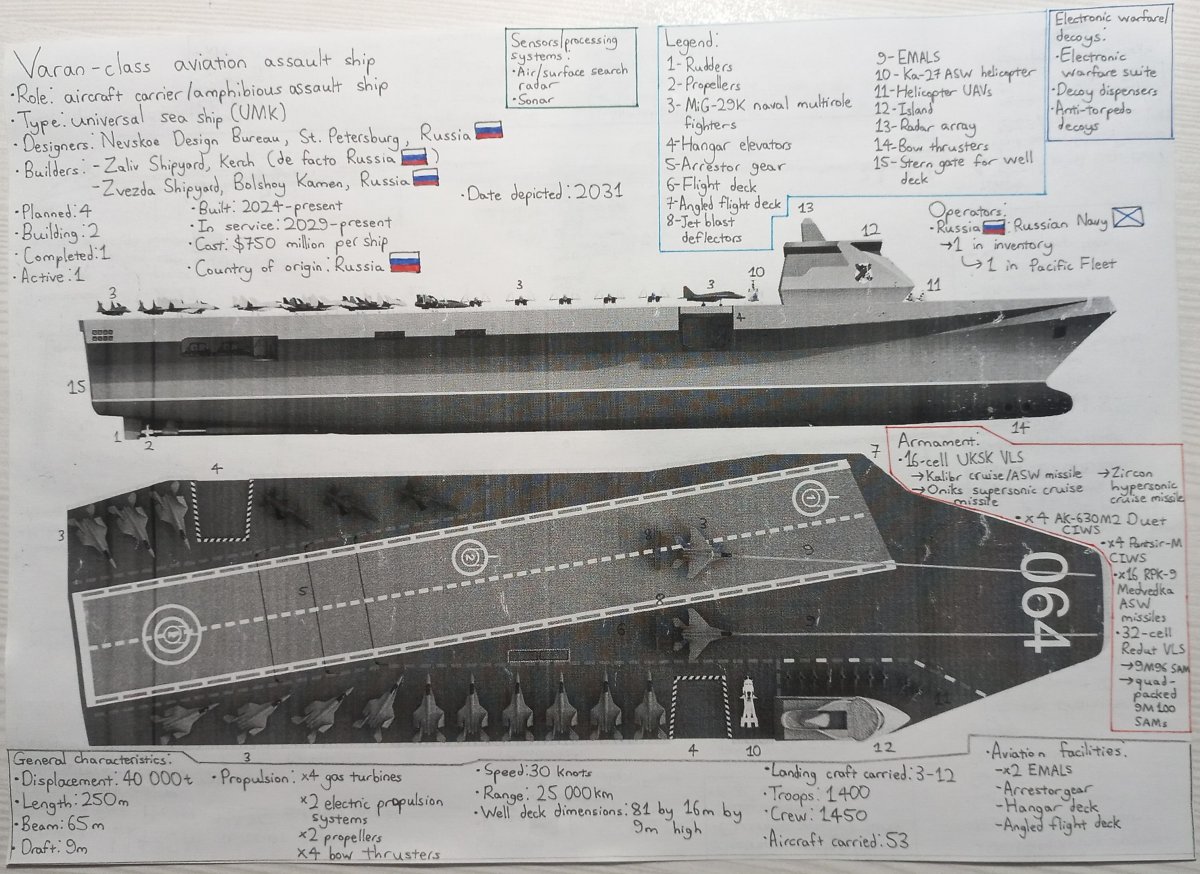 Varan-class aviation assault ship
•Role: aircraft carrier/amphibious assault ship
•Type: universal sea ship (UMK)
•Designers: Nevskoe Design Bureau, St. Petersburg, Russia
•Builders: -Zaliv Shipyard, Kerch (de facto Russia)
-Zvezda Shipyard, Bolshoy Kamen, Russia
•Planned: 4
•Building: 2
•Completed: 1
•Active: 1
•Built: 2024-present
•In service: 2029-present
•Cost: $750 million per ship
•Country of origin: Russia
•Date depicted: 2031
Sensors/processing
systems:
•Air/surface search
radar
•Sonar
Legend:
1- Rudders
2- Propellers
3- MiG-29K naval multirole
fighters
4- Hangar elevators
5- Arrestor gear
6- Flight deck
7- Angled flight deck
8- Jet blast
deflectors
9- EMALS
10- Ka-27 ASW helicopter
11- Helicopter UAVs
12- Island
13- Radar array
14- Bow thrusters
15- Stern gate for well
deck
Electronic warfare/
decoys:
•Electronic
warfare suite
•Decoy dispensers
•Anti-torpedo
decoys
Operators:
•Russia: Russian Navy
→1 in inventory
↳1 in Pacific Fleet
13
12
10
11
3
3
3
4
15
1
2
14
7
4
3
8
3
9
5
8
6
9
11
3
4
10
12
1
2
064
Armament:
•16-cell UKSK VLS
→Kalibr cruise/ASW missile
→Oniks supersonic cruise
missile
→Zircon
hypersonic
cruise missile
•x4 AK-630M2 Duet
CIWS
•x4 Pantsir-M
CIWS
•x16 RPK-9
Medvedka
ASW
missiles
•32-cell
Redut VLS
→9M96 SAM
→quad-
packed
9M100
SAMs
General characteristics:
•Displacement: 40 000t
•Length: 250m
•Beam: 65m
•Draft: 9m
•Propulsion: x4 gas turbines
x2 electric propulsion
systems
x2 propellers
x4 bow thrusters
•Speed: 30 knots
•Range: 25 000km
•Well deck dimensions: 81 by 16m by
9m high
•Landing craft carried: 3-12
•Troops: 1400
•Crew: 1450
•Aircraft carried: 53
•Aviation facilities:
-x2 EMALS
-Arrestor gear
-Hangar deck
-Angled flight deck